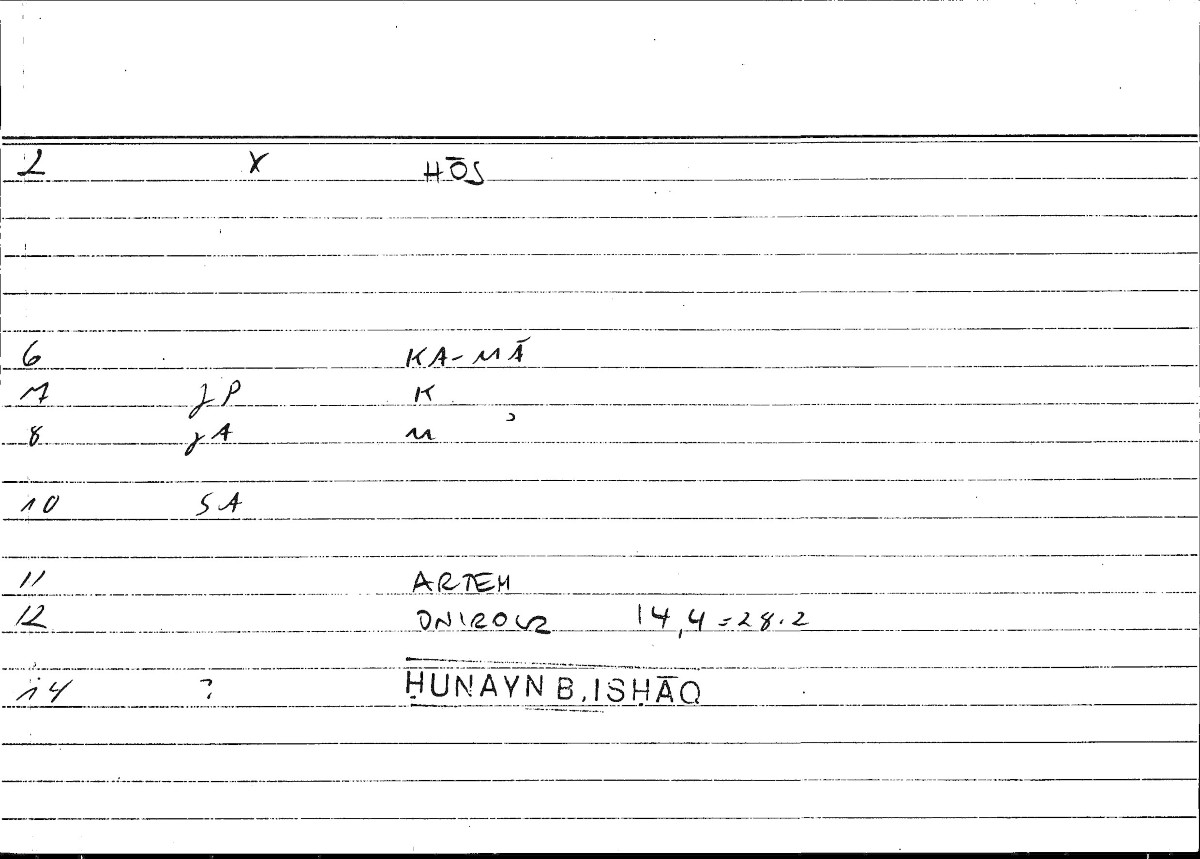 2 X HŌS
6 KA-MĀ
7 jP K
8 jA M
10 SA
11 ARTEM
12 ONIROCR 14,4=28.2
14 ? ḤUNAYN B. ISḤĀQ